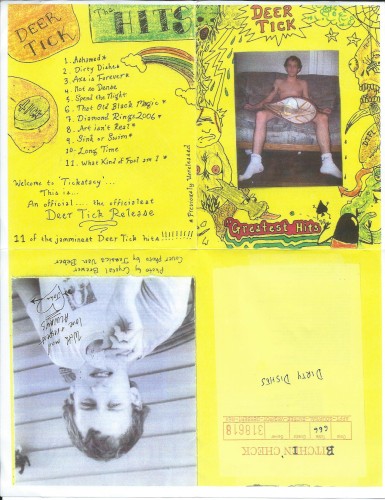 DEER
TICK
The HITS
1. Ashamed*
2. Dirty Dishes
3. Axe is Forever*
4. Not So Dense
5. Spend the Night
6. That Old Black Magic *
7. Diamond Rings 2006 *
8. Art isn't Real *
9. Sink or Swim *
10. Long Time
11. What Kind of Fool am I *
* Previously Unreleased
Welcome to 'Tickstasy'...
This is...
An official.... the officialest
Deer Tick Release
11 of the jamminest Deer Tick hits
DEER
TICK
Greatest Hits
Photo by Crystal Brewer
Cover Photo by Jessica Van
With much
love + respect
ALWAYS
DIRTY DISHES
BITCHIN CHECK
318618